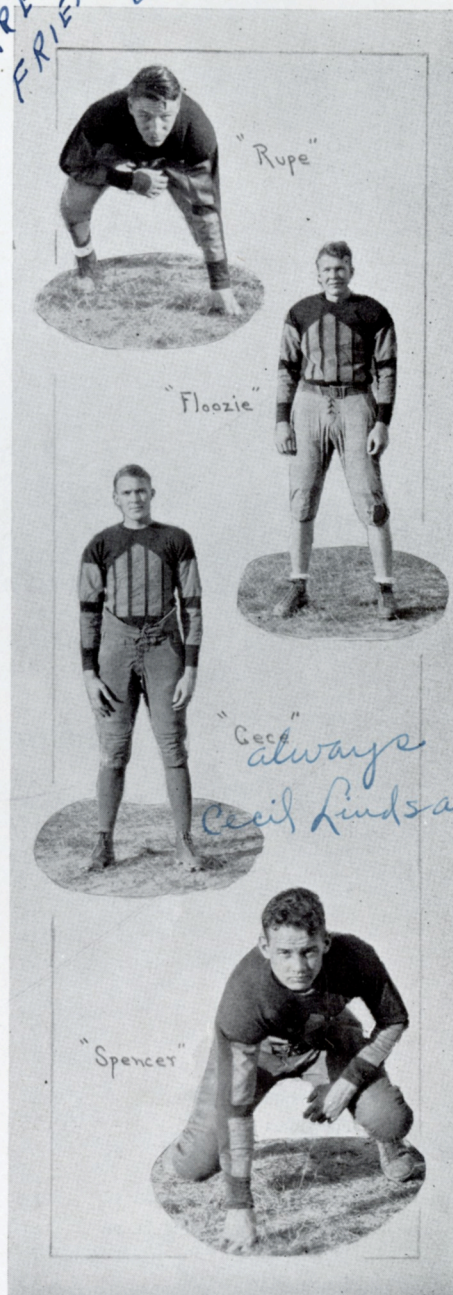 "Rupe"
"Floozie"
"Cece"
always
Cecil Lindsa
"Spencer"